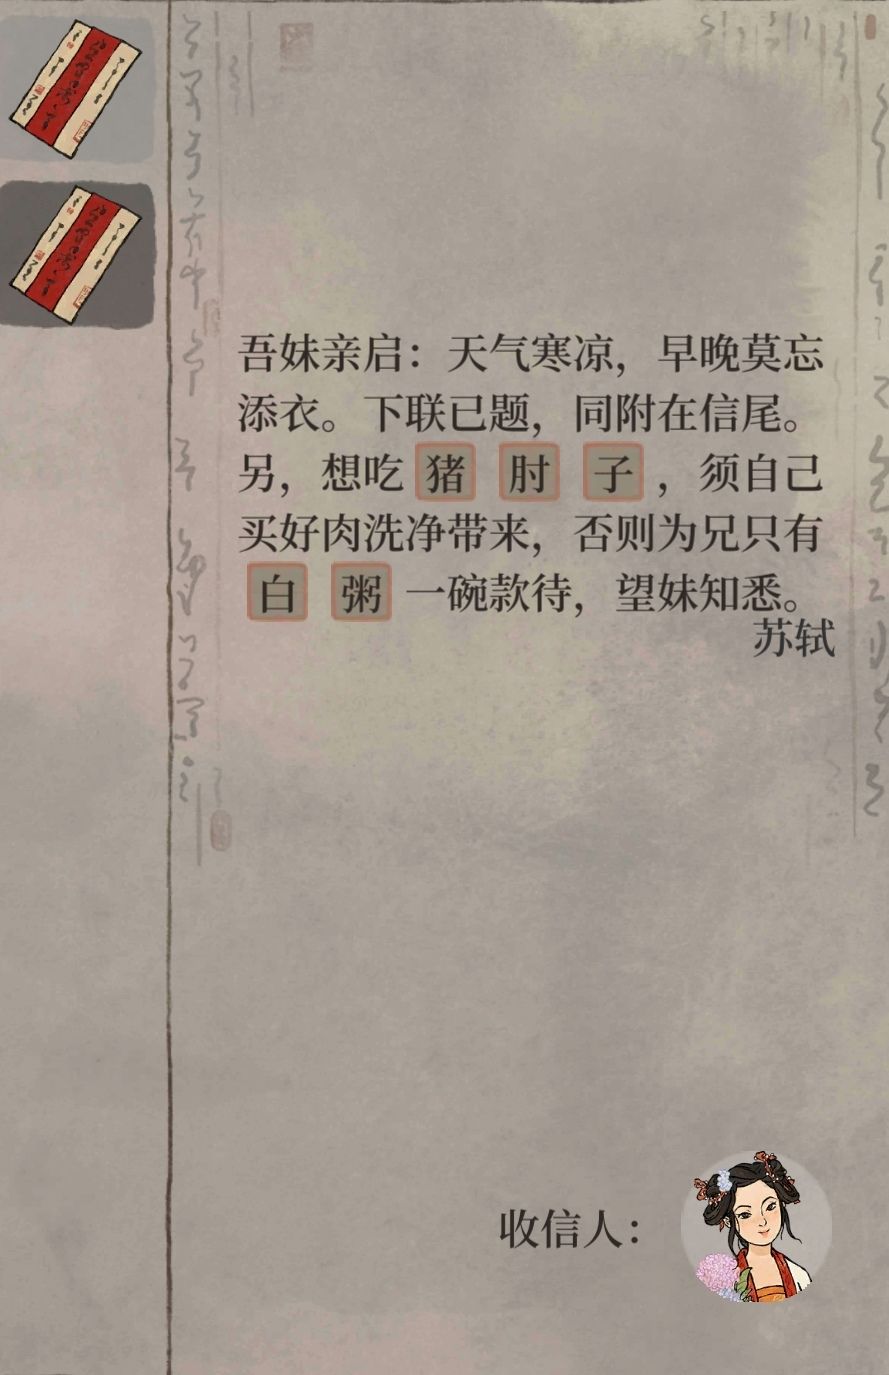 吾妹亲启：天气寒凉，早晚莫忘
添衣。下联已题，同附在信尾。
另，想吃 猪 肘 子 ，须自己
买好肉洗净带来，否则为兄只有
白 粥 一碗款待，望妹知悉。
苏轼
收信人：